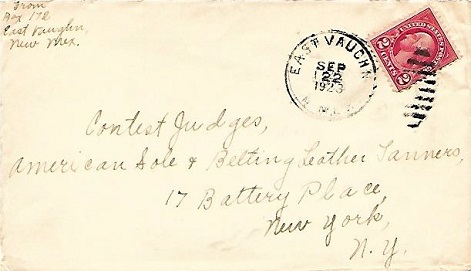 From
Box 172
East Vaughn,
New Mex.
EAST VAUGHN
SEP
22
1923
N.MEX.
UNITED STATES POSTAGE
2 CENTS 2
Contest Judges,
American Sole & Belting Leather Tanners,
17 Battery Place,
New York,
N.Y.